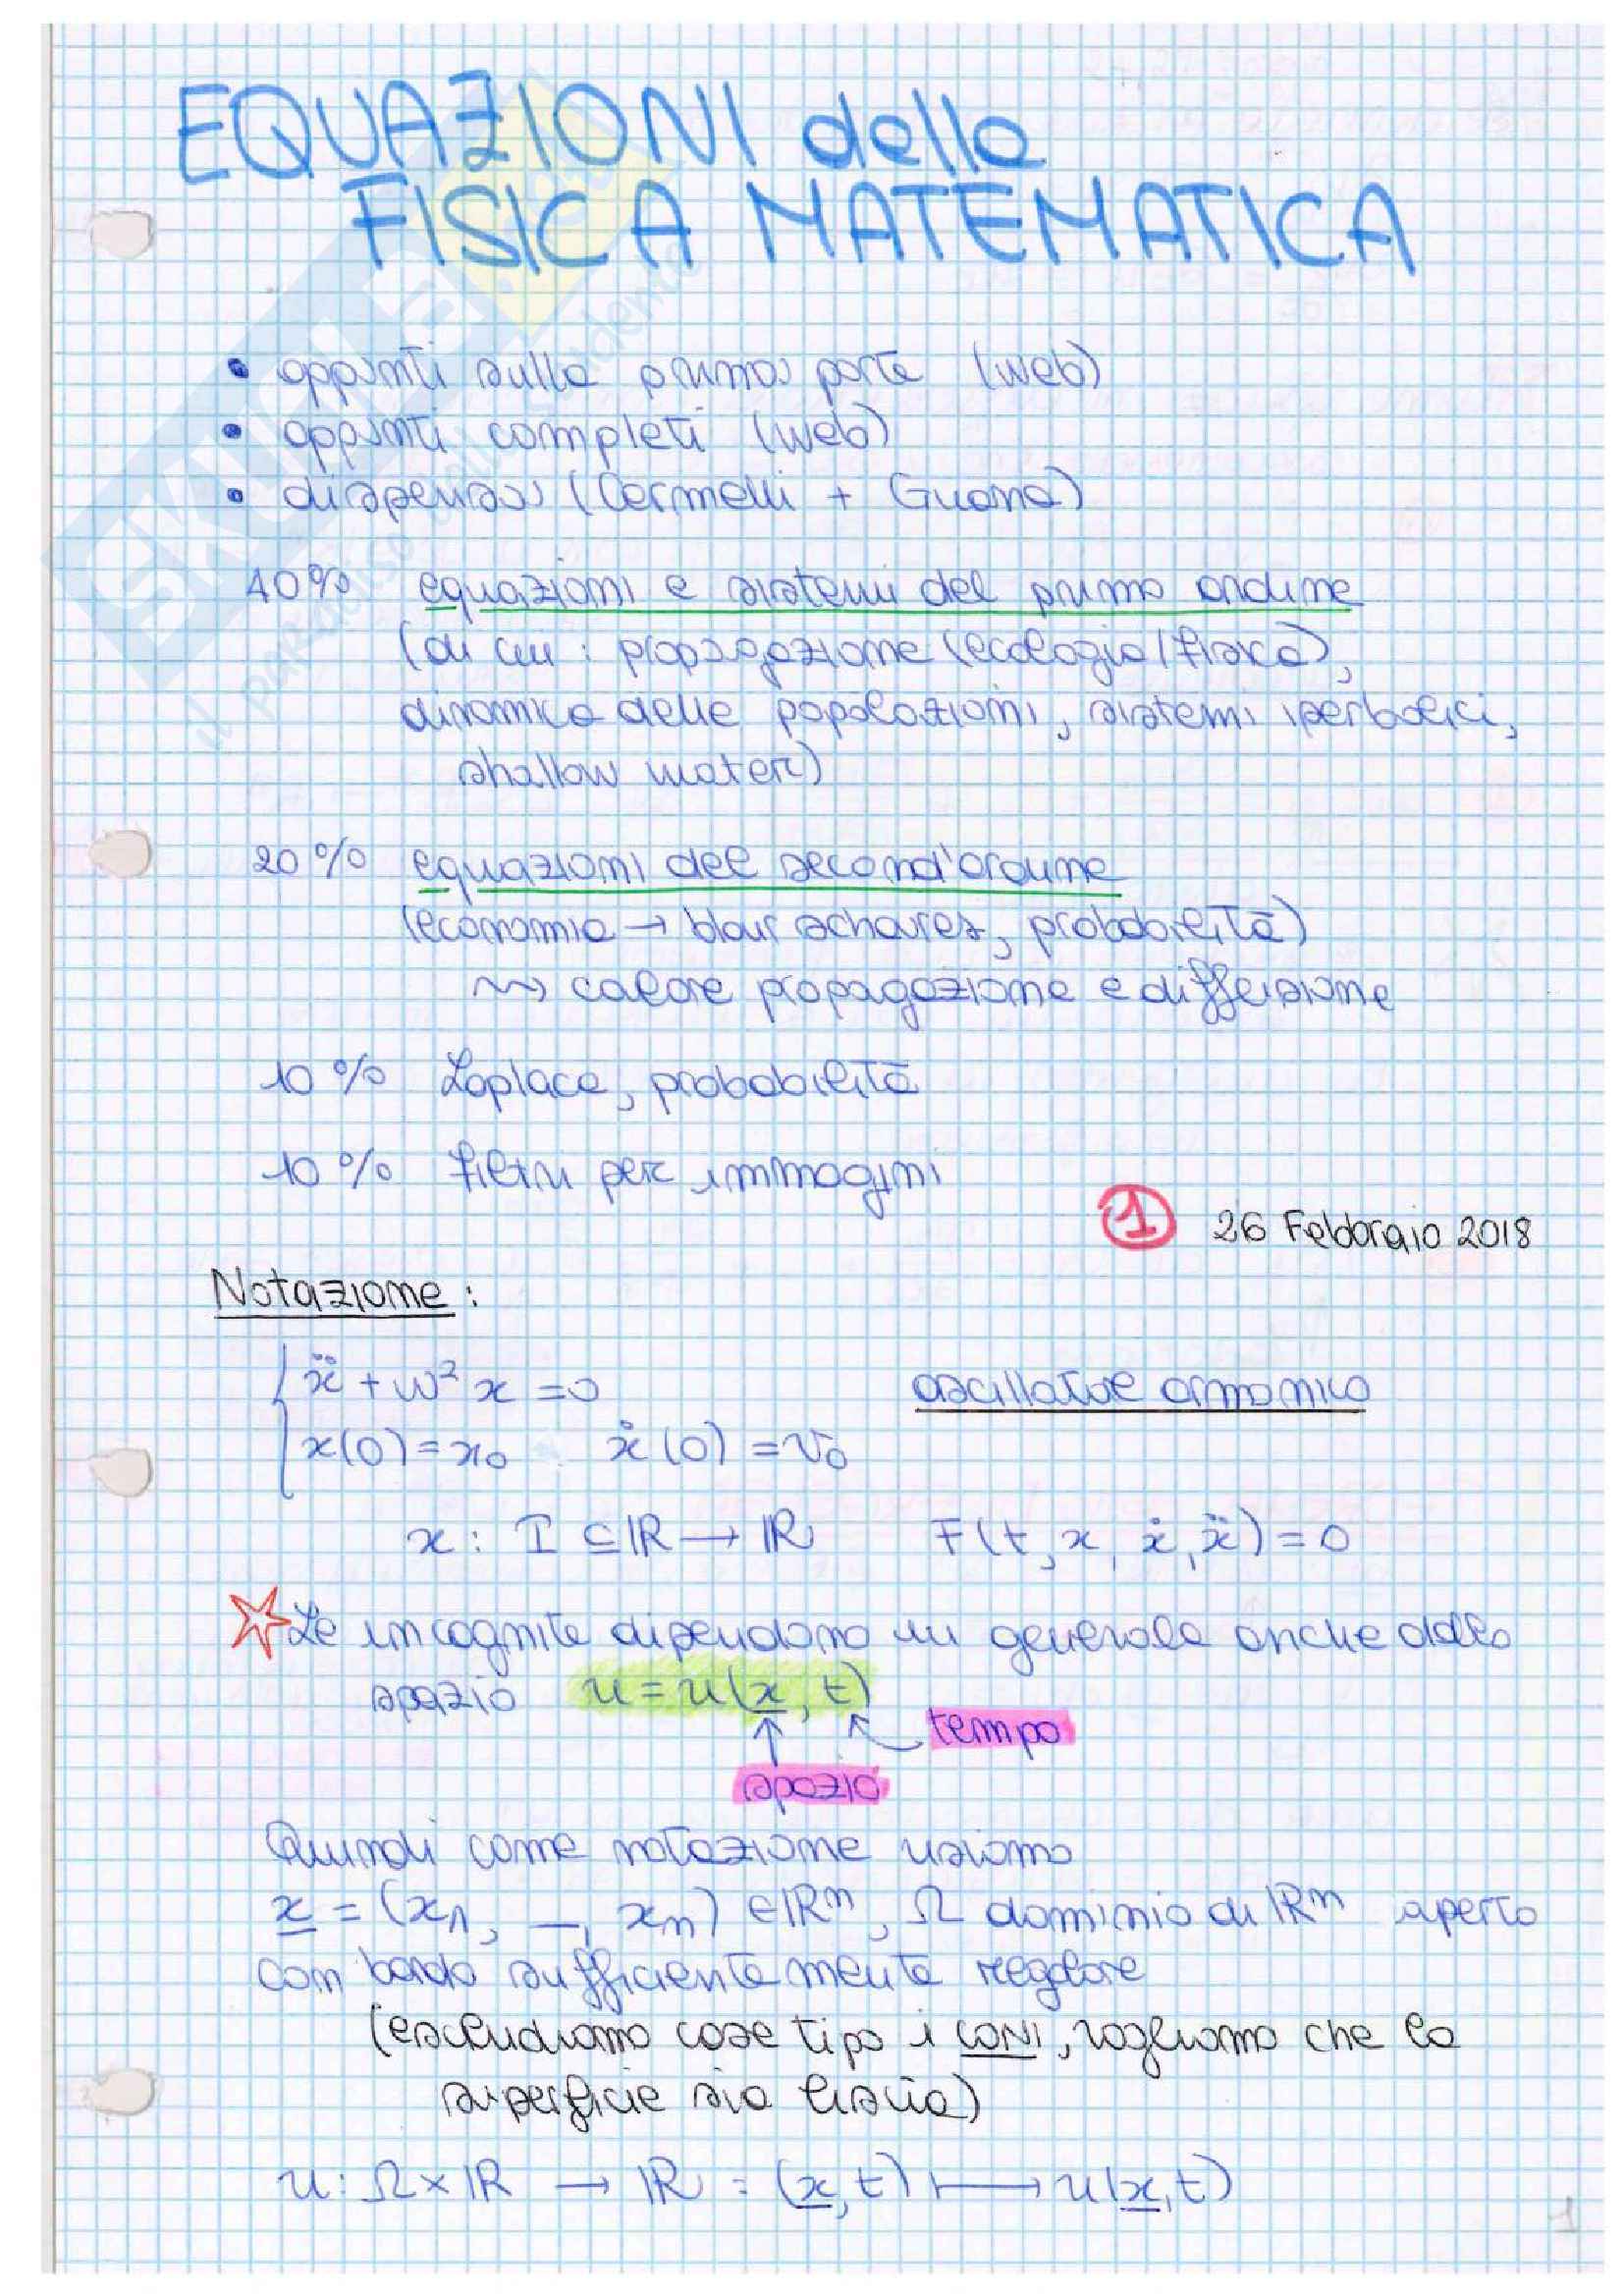 EQUAZIONI della
FISICA MATEMATICA
• appunti sulla prima parte (web)
• appunti completi (web)
• dispensa (Cermelli + Guana)
40% equazioni e sistemi del primo ordine
(di cui: propagazione (ecologia/fisica),
dinamica delle popolazioni, sistemi iperbolici,
shallow water)
20% equazioni del second'ordine
(economia → blair schoures, probabilità)
⇝ calore propagazione e diffusione
10% Laplace, probabilità
10% filtri per immagini
① 26 Febbraio 2018
Notazione:
{ ẍ + ω² x = 0 oscillatore armonico
x(0) = x₀ ẋ(0) = v₀
x: I ⊆ ℝ → ℝ F(t, x, ẋ, ẍ) = 0
☆ Le incognite dipendono in generale anche dallo
spazio u = u(x, t)
tempo
spazio
Quindi come notazione usiamo
x = (x₁, _, xₙ) ∈ ℝⁿ, Ω dominio di ℝⁿ aperto
con bordo sufficientemente regolare
(escludiamo cose tipo i CONI, vogliamo che la
superficie sia liscia)
u: Ω × ℝ → ℝ : (x, t) ↦ u(x, t)
1
SKUOLA.net
il paradiso dello studente